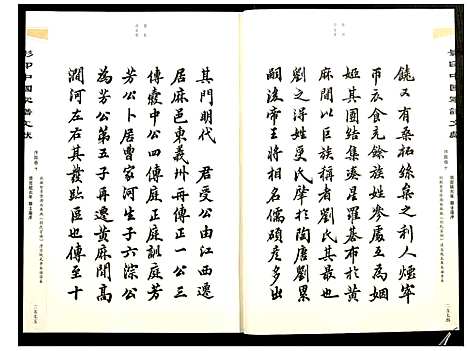 饒又有桑柘絲枲之利人煙宰
帀衣食充餘族姓參處互為姻
婭其團結集湊星羅碁布於黃
麻間以巨族稱者劉氏其最也
劉之得姓受氏肇於陶唐劉累
嗣後帝王將相名儒碩彥多出
其門明代 君受公由江西遷
居麻邑東義州再傳正一公三
傳慶中公四傳庭正庭訓庭芳
芳公卜居曹家河生子六淙公
為芳公第五子再遷黃麻間高
澗河左右其發跡區也傳至十
一五七四
一五七五